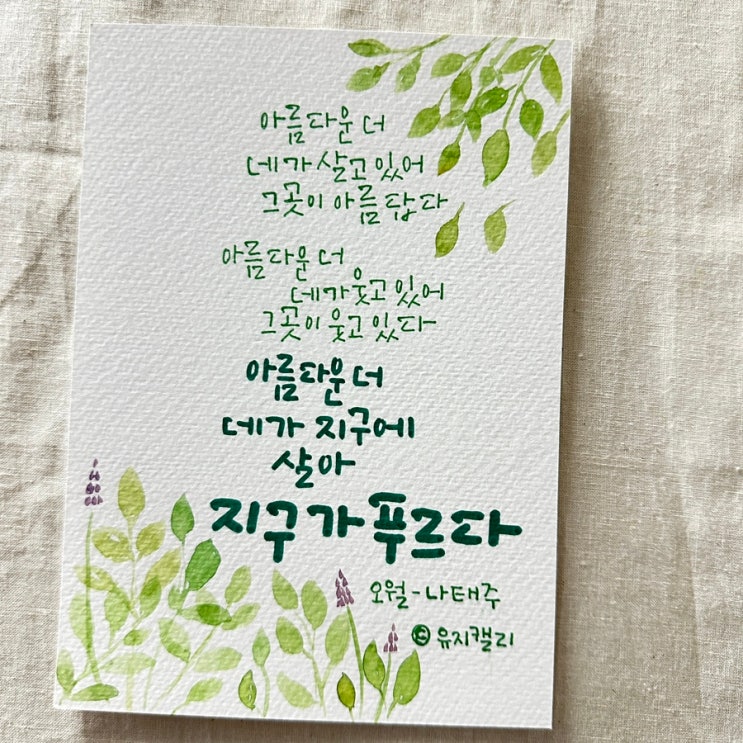 아름다운 너
네가 살고 있어
그곳이 아름답다
아름다운 너
네가 웃고 있어
그곳이 웃고 있다
아름다운 너
네가 지구에
살아
지구가 푸르다
오월 - 나태주
© 유지캘리